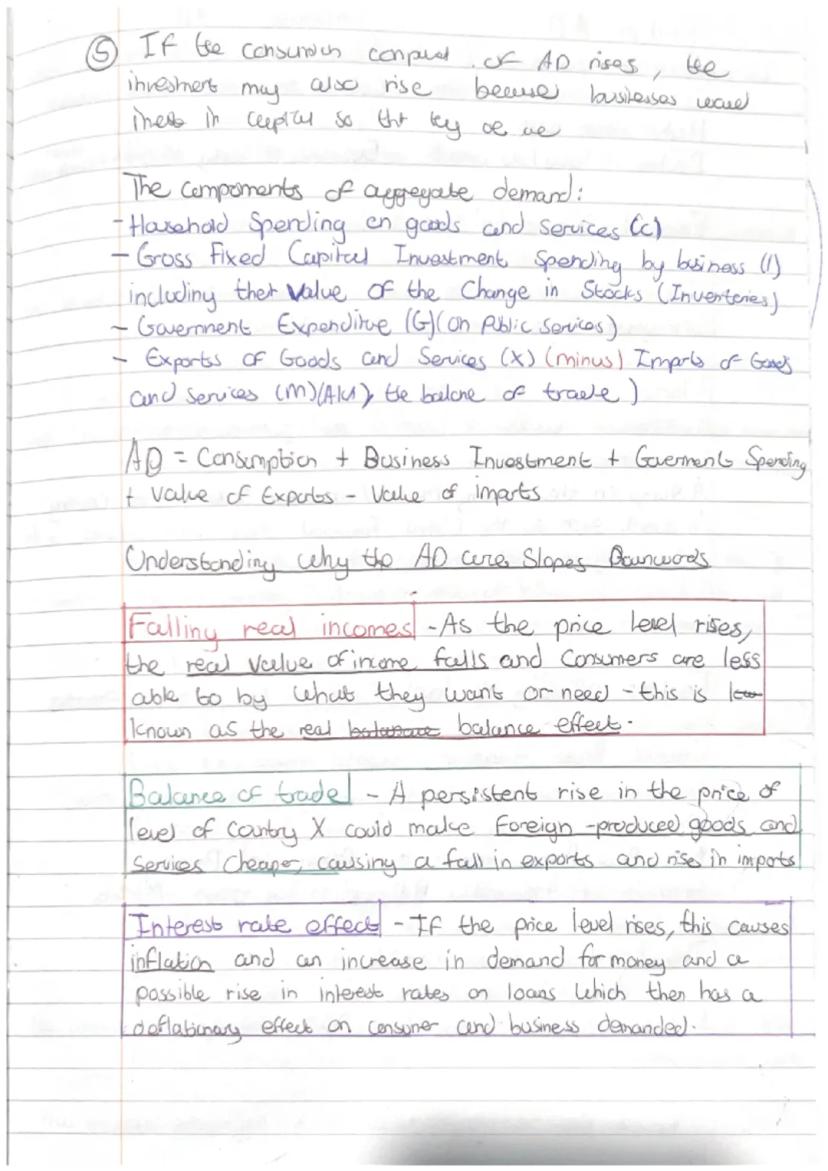 ⑤ If the consumption component of AD rises, the
investment may also rise because businesses would
invest in capital so tht they
The components of aggregate demand:
- Household Spending on goods and services (C)
- Gross Fixed Capital Investment Spending by business (I)
including ther value of the change in Stocks (Inventories)
- Government Expenditure (G) (on Public Services)
- Exports of Goods and Services (X) (minus) Imports of Goods
and services (M) (AKA, the balance of trade)
AD = Consumption + Business Investment + Goverment Spending
+ Value of Exports - Value of imports
Understanding why the AD curve Slopes Downwards
Falling real incomes - As the price level rises,
the real value of income falls and consumers are less
able to by what they want or need - this is
known as the real balance effect.
Balance of trade - A persistent rise in the price of
level of Country X could make foreign-produced goods and
services cheaper, causing a fall in exports and rise in imports
Interest rate effect - If the price level rises, this causes
inflation and an increase in demand for money and a
possible rise in interest rates on loans which then has a
deflationary effect on consumer and business demanded.